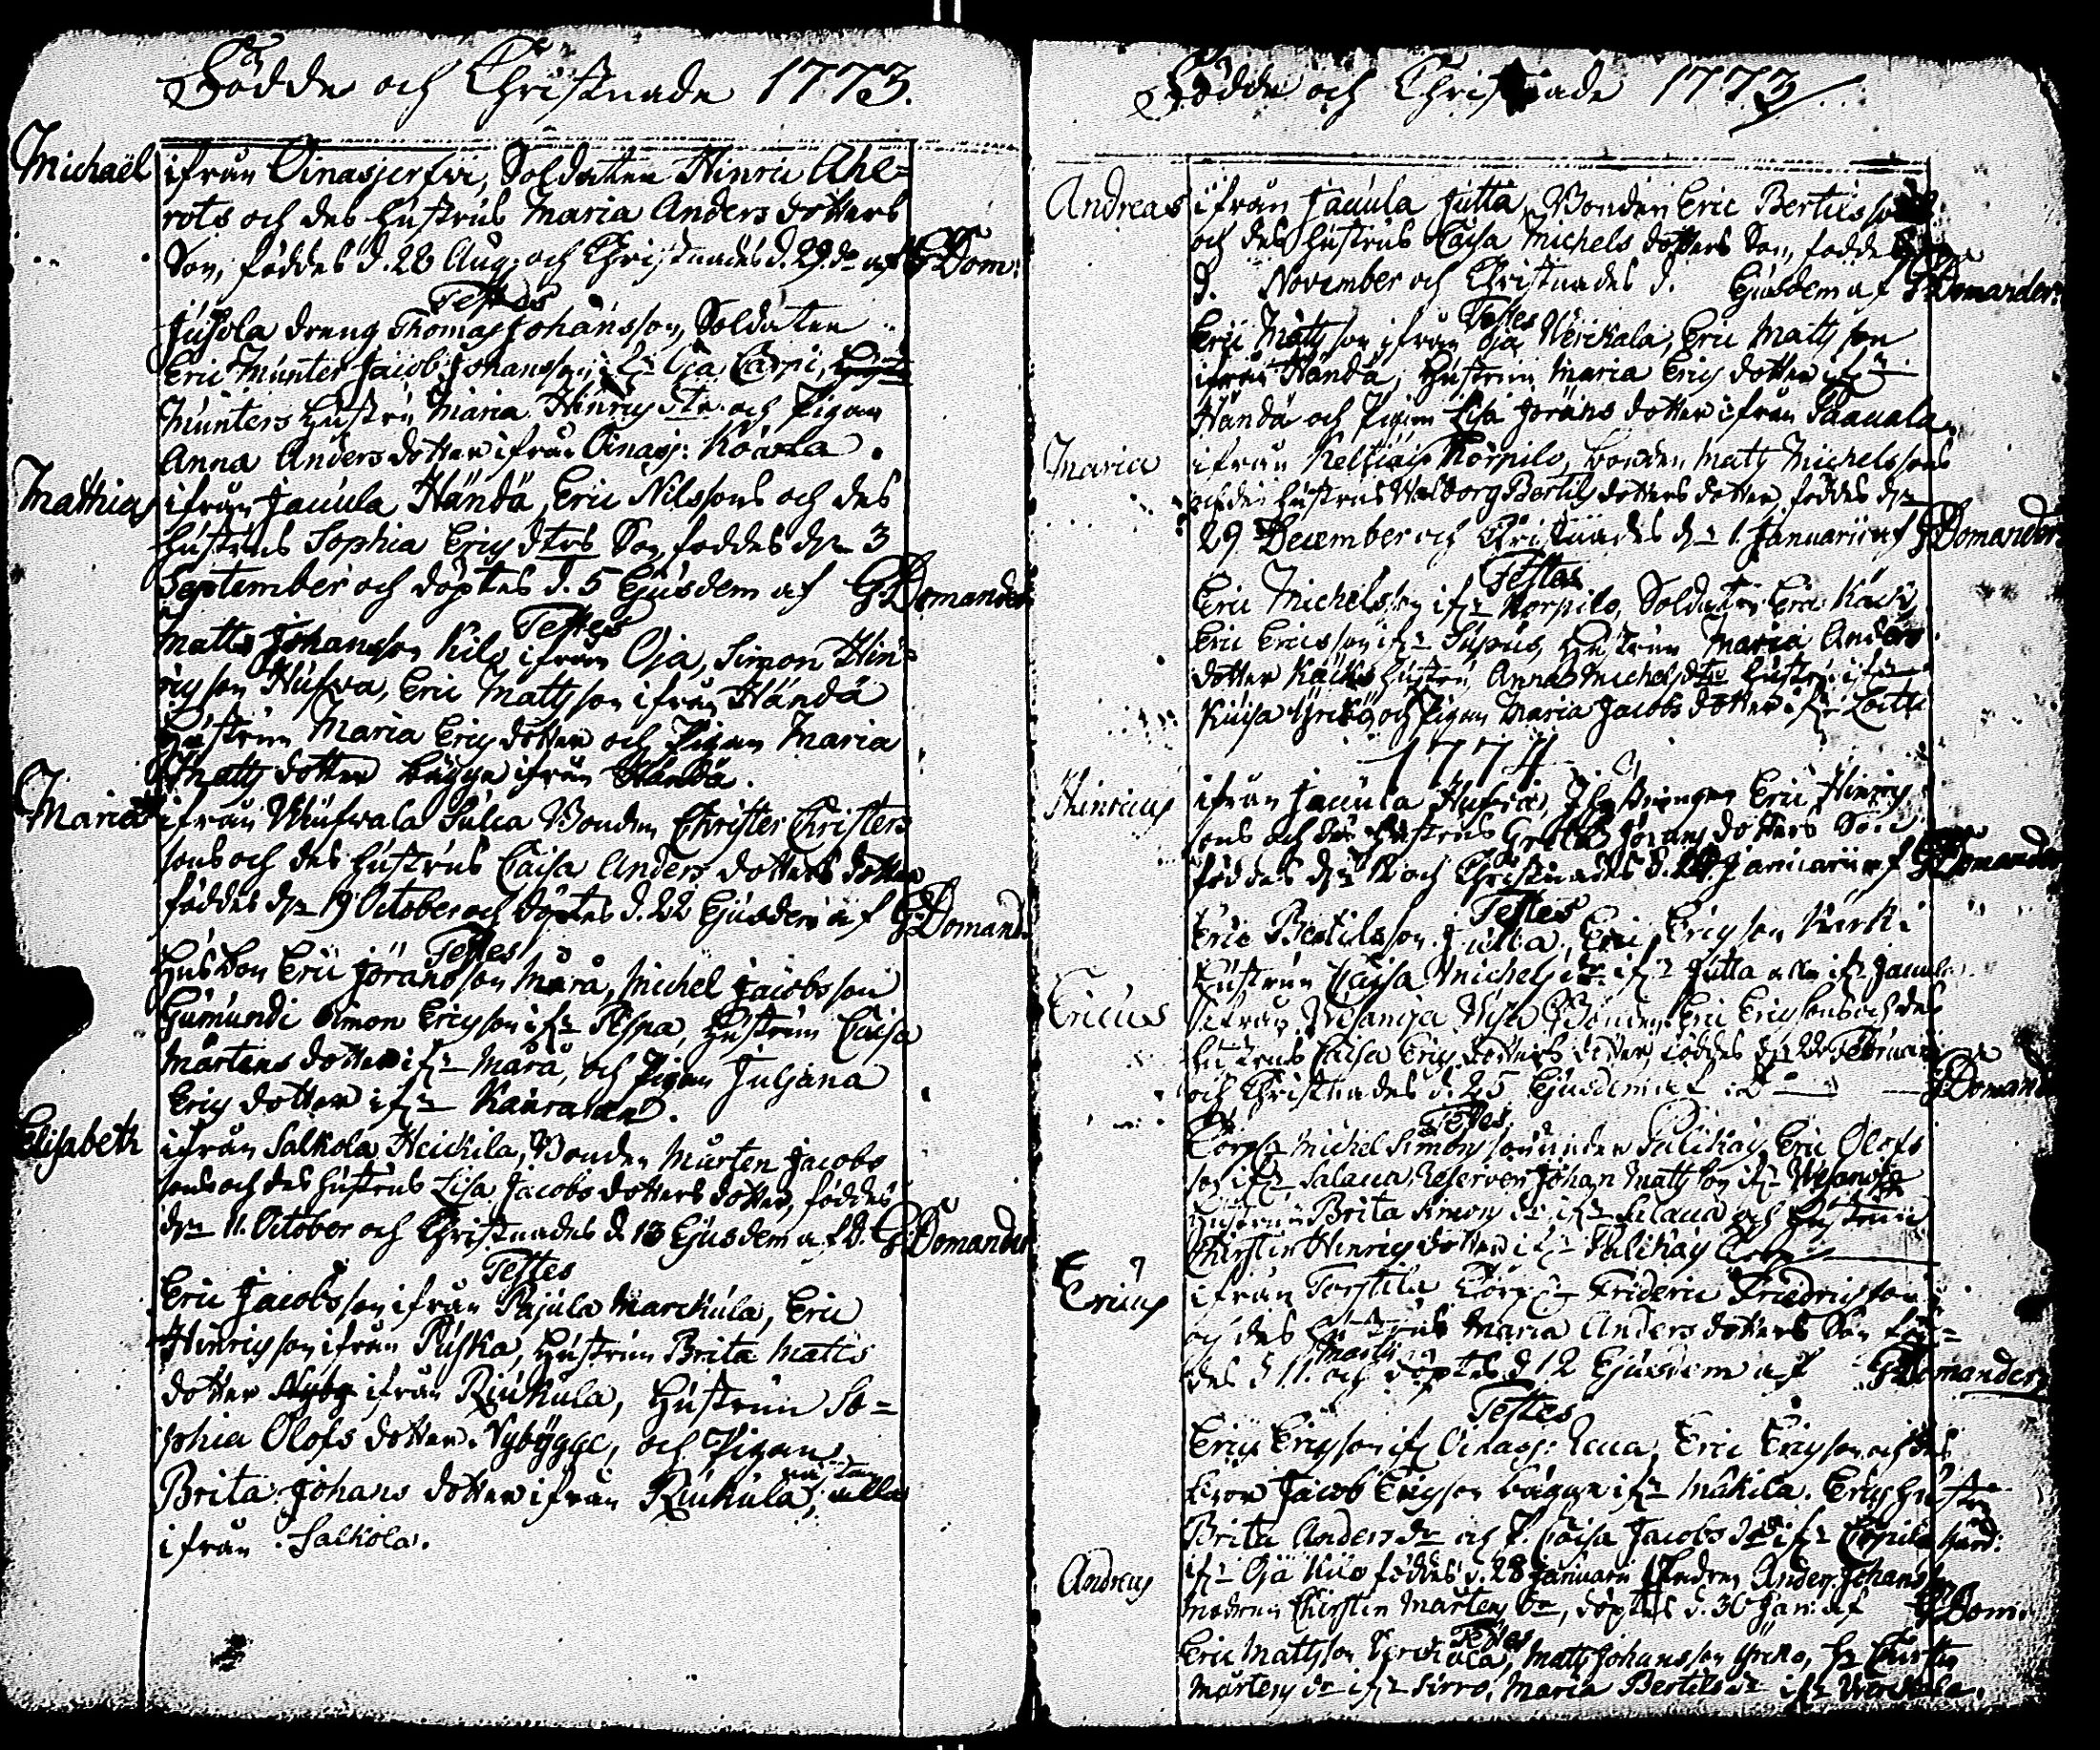 Födde och Christnade 1773.
Michaël ifrån Oinasjerfvi, Soldaten Hinric Ahl=
rots och des hustrus Maria Anders dotters
Son, föddes d. 28 Aug: och Christnades d. 29. do af GDom:
Testes
Jusola dreng Thomas Johansson, Soldaten
Eric Munter Jacob Johansson if:n Oja Carpi,
Munters hustru Maria Hinrics dtr. och Pigan
Anna Anders dotter ifrån Oinasj: Kovla.
Mathias ifrån Jauula Händä, Eric Nilssons och des
hustrus Sophia Erics dtrs Son, föddes d:n 3
September och döptes d. 5 Ejusdem af GDomander
Testes
Matts Johansson Kilo ifrån Oja, Simon Hin=
ricsson Hufva, Eric Mattsson ifrån Händä
Hustrun Maria Erics dotter och Pigan Maria
Matts dotter bägge ifrån Händä.
Maria ifrån Sulca Bonden Christer Christers
sons och des hustrus Caisa Anders dotters dotter
föddes d:n 19 October och döptes d. 22 Ejusdem af GDomand.
Testes
Husbon Eric Jöransson Mårå, Michel Jacobsson
Gumundi Simon Ericsson if:n Pispa, Hustrun Caisa
Mårtens dotter if:n Mårå, och Pigan Juljana
Erics dotter if:n
Elisabeth ifrån Salkola Heickila, Bonden Mårten Jacobs
sons och des hustrus Lisa Jacobs dotters dotter, föddes
d:n 11. October och Christnades d. 13 Ejusdem af d. GDomander
Testes
Eric Jacobsson ifrån Pajula Marckula, Eric
Hinricsson ifrån Puska, Hustrun Brita Matts
dotter ifrån Riukula, Hustrun So=
phia Olofs dotter Nybygge, och Pigan
Brita Johans dotter ifrån Riukula, nästan alla
ifrån Salkola.
Födde och Christnade 1773
Andreas ifrån Jauula Jutta, Bonden Eric Bertils sons
och des hustrus Caisa Michels dotters Son, födde
d. November och Christnades d. Ejusdem af GDomander:
Testes
Eric Mattsson ifrån Oja Verckala, Eric Mattsson
ifrån Händä, Hustrun Maria Erics dotter if:n
Händä och Pigan Lisa Jörans dotter ifrån
Maria ifrån Körpilo, bonden Matts Michelssons
och des hustrus Walborg Bertils dotters dotter, föddes d:n
29 December och Christnades d:n 1. Januarii af GDomander.
Testes
Eric Michelsson if:n Korpilo, Soldaten Eric Käck,
Eric Ericsson if:n Supus, Hustrun Maria Anders
dotter Käcks hustru, Anna Michels dtr hustru if:n
och Pigan Maria Jacobs dotter if:n
1774
Hinricus ifrån Jauula Hufva, Eric Hinrics
sons och des hustrus Greta Jörans dotters Son
föddes d:n 12 och Christnades d. Januarii af GDomander
Testes
Eric Bertilsson Jutta, Eric Ericsson
Hustrun Caisa Michels dr. if:n Jutta alla if:n Jauula.
Ericus ifrån Bonden Eric Ericssons och des
hustrus Caisa Erics dotters dotter, föddes d:n 22 Februarii
och Christnades d. 25 Ejusdem af GDomand
Testes
Torp:n Michel Simonsson under Palikäs, Eric Olofs
son if:n Salaca, Reserven Johan Mattsson if:n
Hustrun Brita Simons dr if:n Salaca och Hustrun
Christin Hinrics dotter if:n Palikäs
Ericus ifrån Torstila Torp:n Frideric Friedricsson
och des hustrus Maria Anders dotters Son föd=
des d 11. Martij och döptes d 12 Ejusdem af GDomander
Testes
Eric Ericsson if:n Oinasj: Eric Ericsson och des
Jacob Ericsson bägge if:n Mäkilä. Erics hustru
Brita Anders dr och P. Caisa Jacobs dr if:n
Andreas if:n Oja Kilo föddes d. 28 Januarii Fadren Anders Johansson
modren Christin Mårtens dr, döptes d. 30 Jan: af GDom:
Testes
Eric Mattsson Matts Johansson
Mårtens dr if:n Sirro, Maria Bertils dr if:n